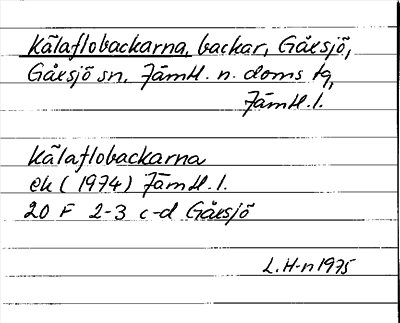 Kälaflobackarna, backar, Gåxsjö,
Gåxsjö sn. Jämtl. n. doms tg,
Jämtl. l.
Kälaflobackarna
ek (1974) Jämtl. l.
20 F 2-3 c-d Gåxsjö
L. H-n 1975